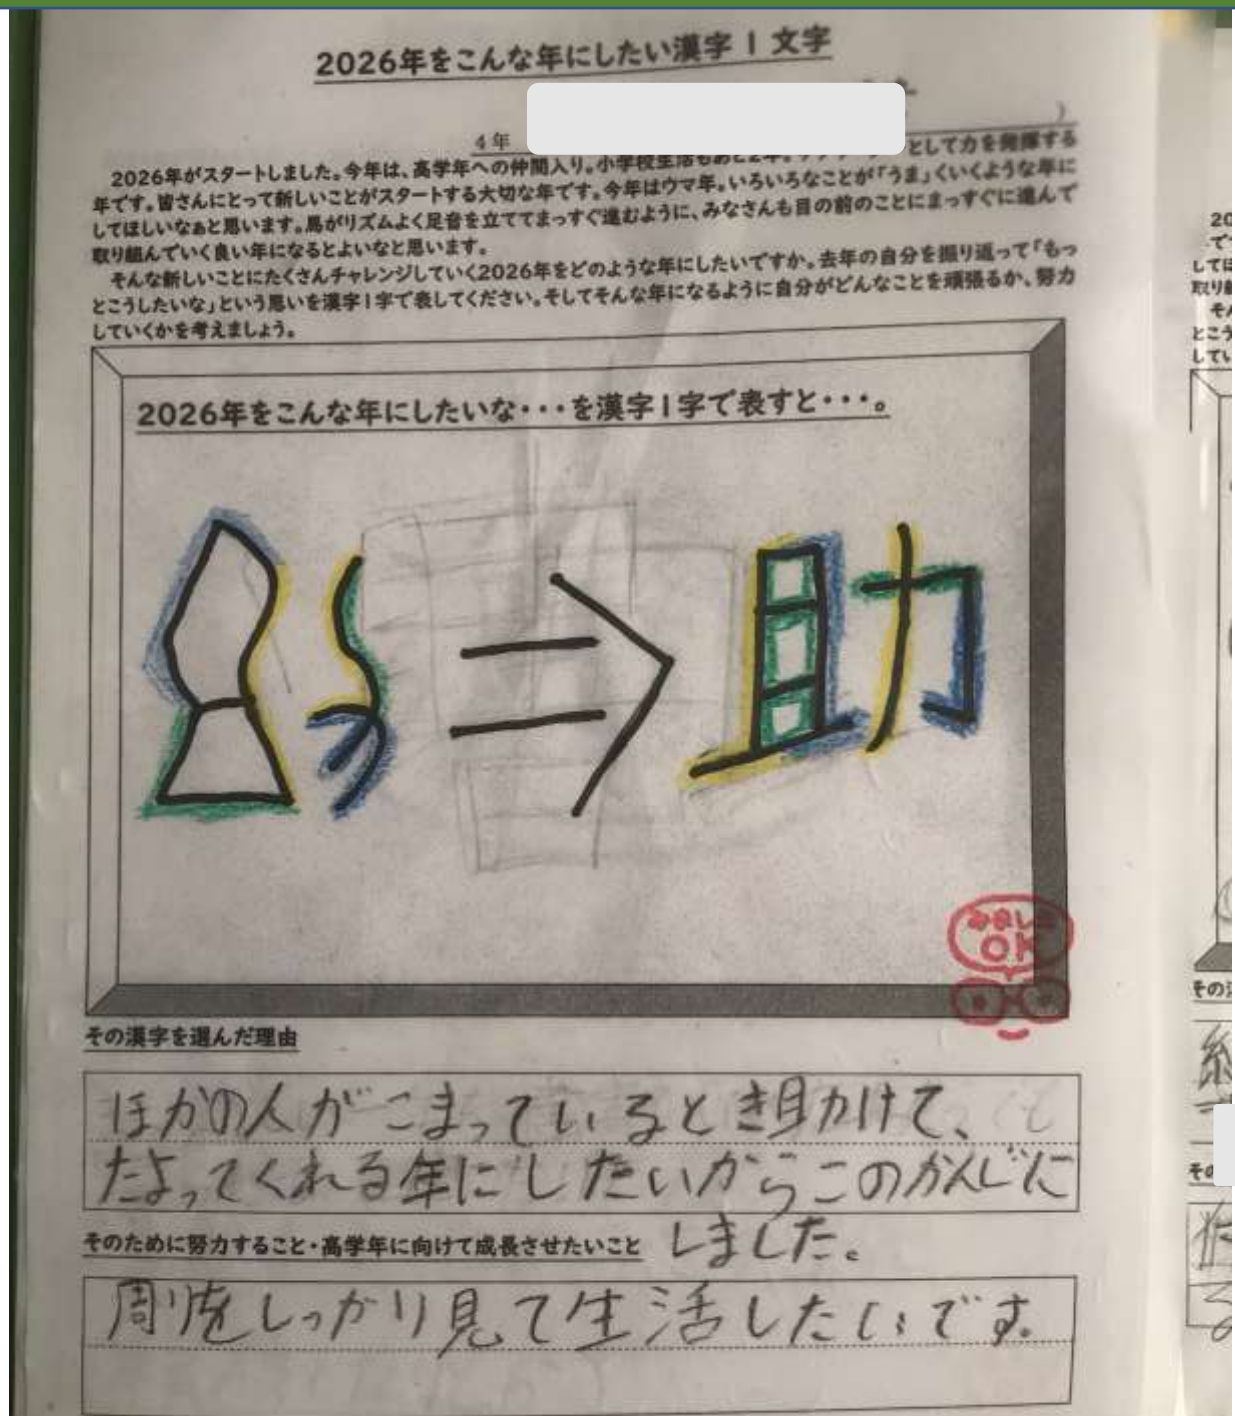 2026年をこんな年にしたい漢字1文字
4年
)
2026年がスタートしました。今年は、高学年への仲間入り。小学校生活もあと2年。 として力を発揮する
年です。皆さんにとって新しいことがスタートする大切な年です。今年はウマ年。いろいろなことが「うま」くいくような年に
してほしいなぁと思います。馬がリズムよく足音を立ててまっすぐ進むように、みなさんも目の前のことにまっすぐに進んで
取り組んでいく良い年になるとよいなと思います。
そんな新しいことにたくさんチャレンジしていく2026年をどのような年にしたいですか。去年の自分を振り返って「もっ
とこうしたいな」という思いを漢字1字で表してください。そしてそんな年になるように自分がどんなことを頑張るか、努力
していくかを考えましょう。
2026年をこんな年にしたいな・・・を漢字1字で表すと・・・。
⇒ 助
みました
OK
その漢字を選んだ理由
ほかの人がこまっているとき助けて、
たよってくれる年にしたいからこのかんじに
しました。
そのために努力すること・高学年に向けて成長させたいこと
周りをしっかり見て生活したいです。
20
してほ
取り組
そん
とこう
してい
その